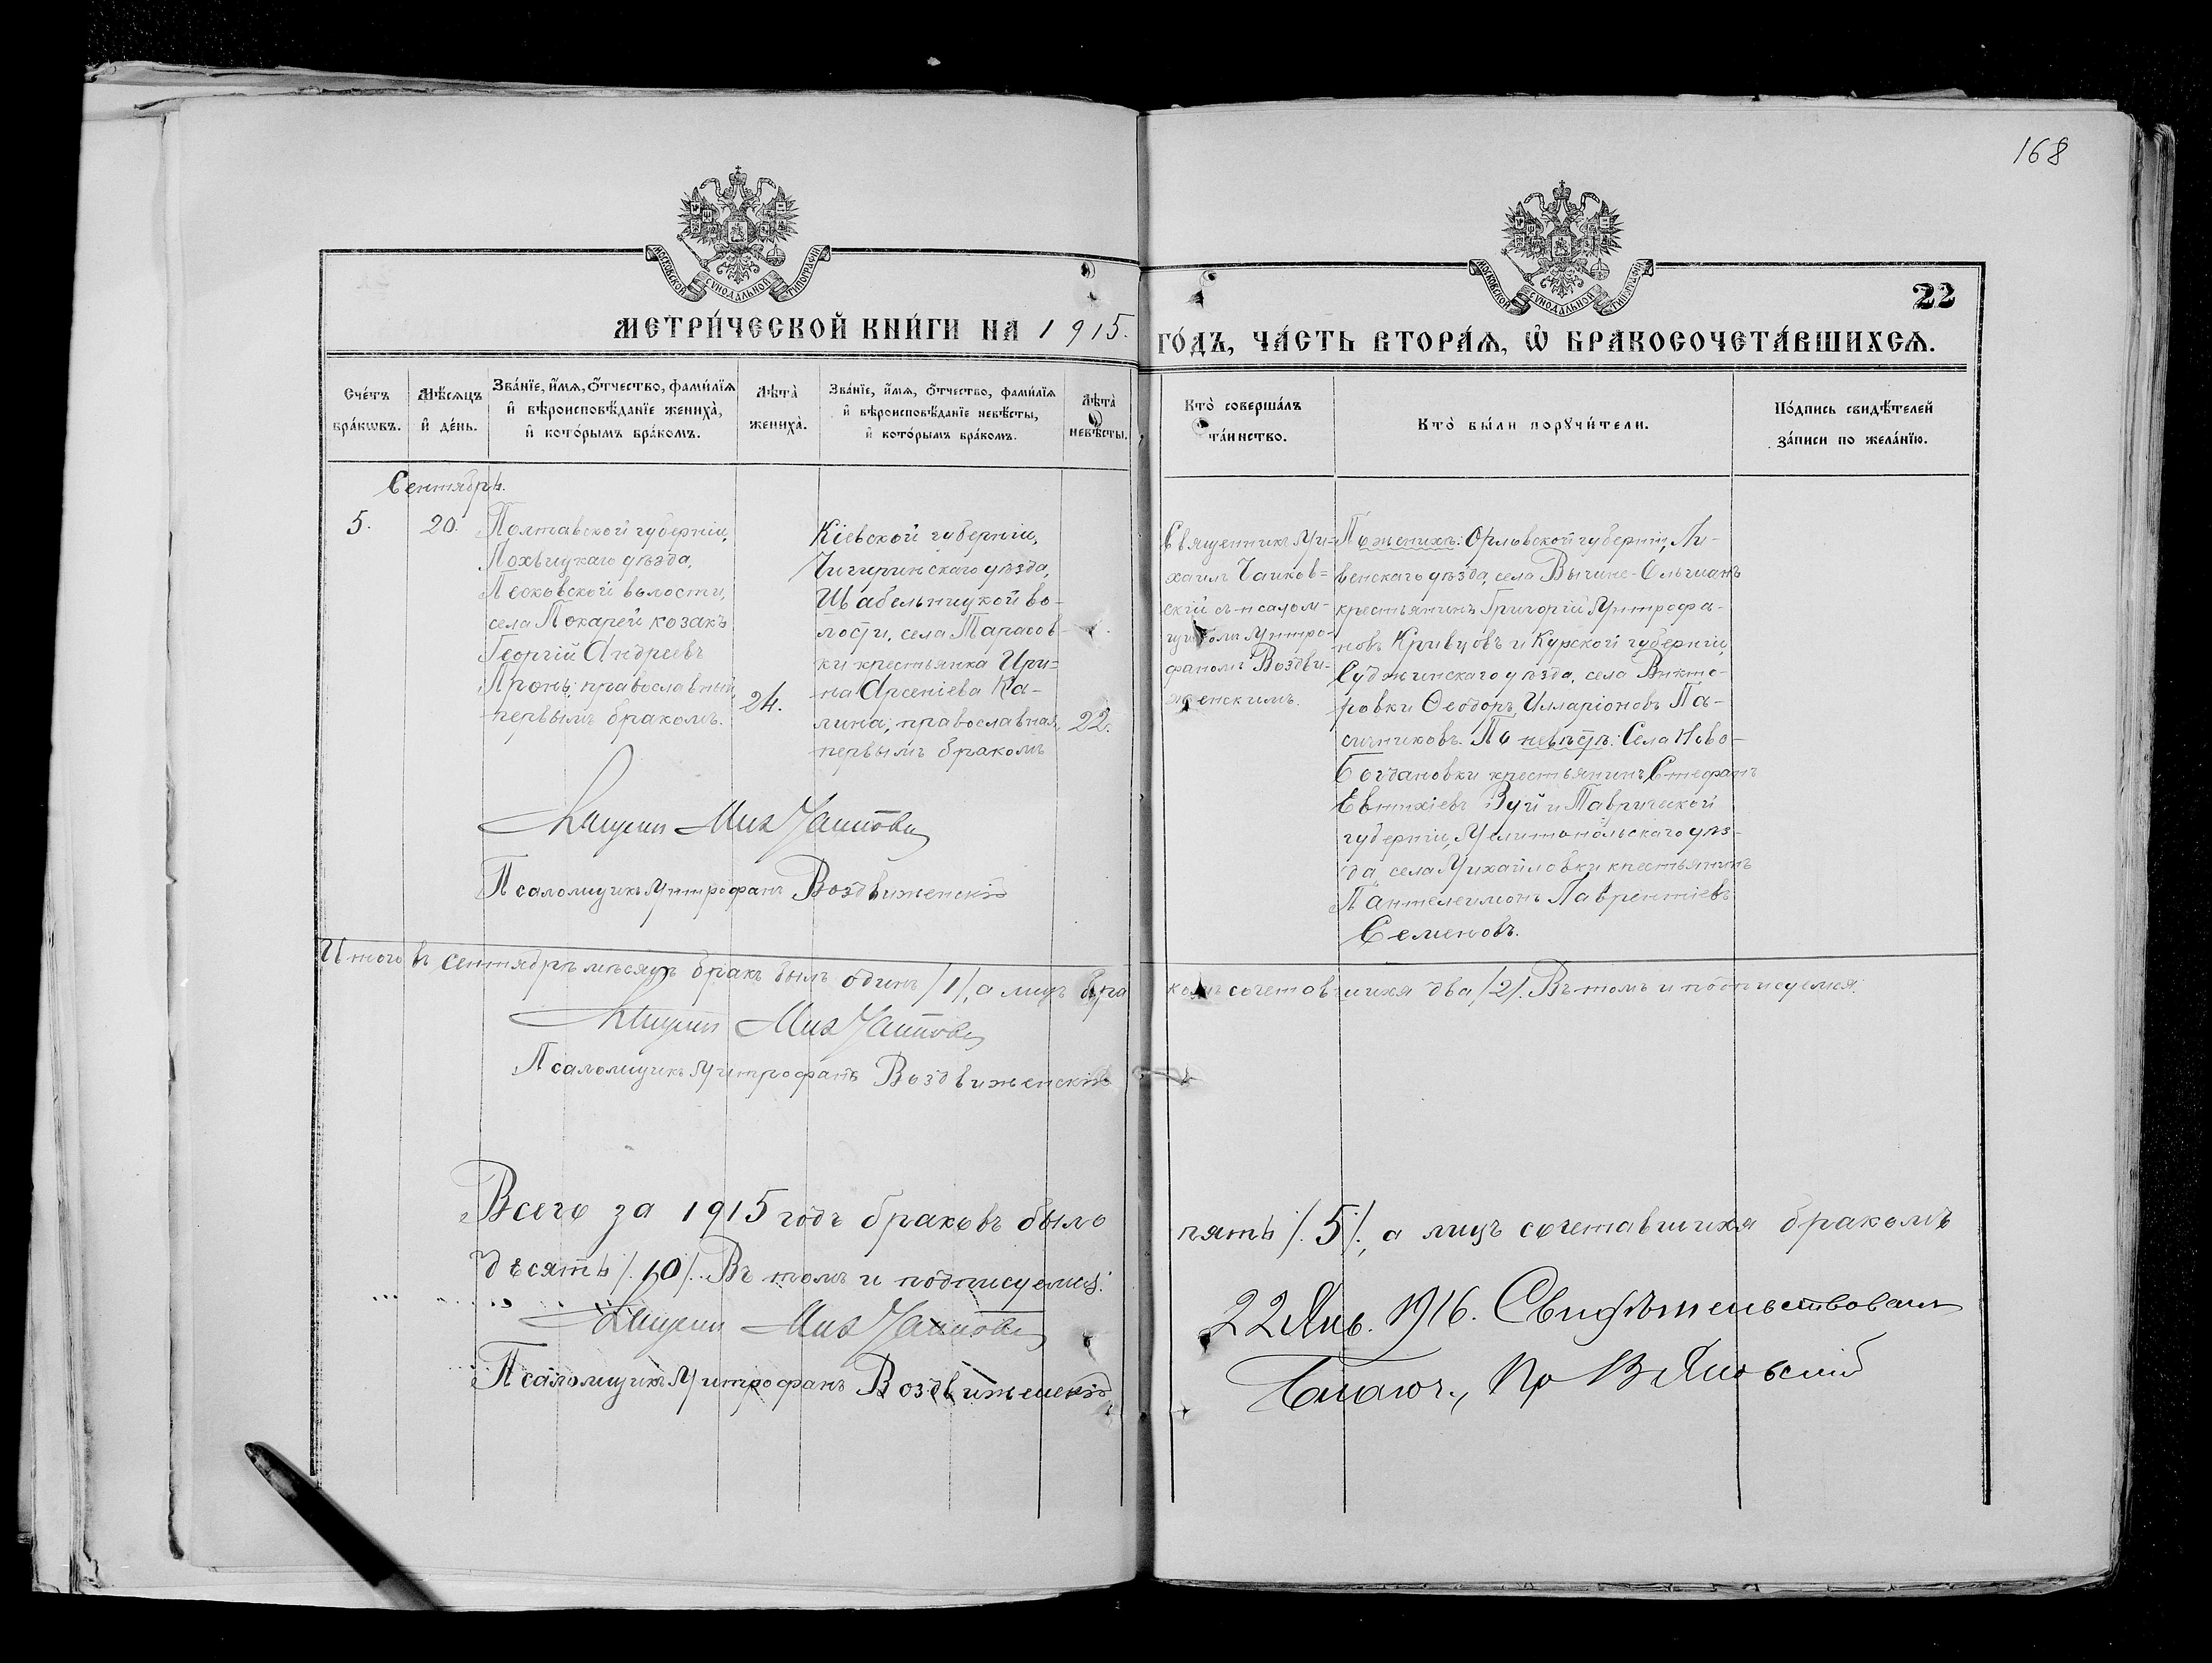 168
МОСКОВСКОЙ СУНОДАЛЬНОЙ ТИПОГРАФІИ
МОСКОВСКОЙ СУНОДАЛЬНОЙ ТИПОГРАФІИ
22
МЕТРИ́ЧЕСКОЙ КНИ́ГИ НА 1915.
ГО́ДЪ, ЧА́СТЬ ВТОРА́Ѧ, Ѽ БРАКОСОЧЕТА́ВШИХСѦ.
Сче́тъ бра́кѡвъ.
Мѣ́сѧцъ и҆ де́нь.
Зва́нїе, и҆́мѧ, ѻ҆́тчество, фами́лїѧ и҆ вѣроисповѣ́данїе жениха̀, и҆ кото́рымъ бра́комъ.
Лѣ́та̀ жениха̀.
Зва́нїе, и҆́мѧ, ѻ҆́тчество, фами́лїѧ и҆ вѣроисповѣ́данїе невѣ́сты, и҆ кото́рымъ бра́комъ.
Лѣ́та̀ невѣ́сты.
Кто̀ соверша́лъ та́инство.
Кто̀ бы́ли порꙋчи́тели.
По́дпись свидѣ́телей за́писи по жела́нїю.
Сентябрь.
5.
20.
Полтавской губерніи,
Лохвицкаго уѣзда,
Песковской волости,
села Токарей козакъ
Георгій Андреевъ
Пронь; православный,
первымъ бракомъ.
24.
Кіевской губерніи,
Чигиринскаго уѣзда,
Шабельницкой во-
лости, села Тарасов-
ки крестьянка Ири-
на Арсеніева Ка-
лина; православная,
первымъ бракомъ
22.
Священникъ Ми-
хаилъ Чайков-
скій съ псалом-
щикомъ Митро-
фаномъ Воздви-
женскимъ.
По женихѣ: Орловской губерніи, Ли-
венскаго уѣзда, села Вышне-Ольшанъ
крестьянинъ Григорій Митрофа-
новъ Кривцовъ и Курской губерніи,
Суджинскаго уѣзда, села Викто-
ровки Ѳеодоръ Илларіоновъ Па-
сичниковъ. По невѣстѣ: Села Ново-
Богдановки крестьянинъ Стефанъ
Евтихіевъ Зуй и Таврической
губерніи, Мелитопольскаго уѣз-
да, села Михайловки крестьянинъ
Пантелеимонъ Лаврентіевъ
Семеновъ.
Священ Мих Чайковск
Псаломщикъ Митрофанъ Воздвиженскій
Итого въ сентябрѣ мѣсяцѣ бракъ былъ одинъ /1/, а лицъ бра
комъ сочетавшихся два /2/. Въ томъ и подписуемся:
Священ Мих Чайковск
Псаломщикъ Митрофанъ Воздвиженскій
Всего за 1915 годъ браковъ было
пять /.5/., а лицъ сочетавшихся бракомъ
десять /.10/. Въ томъ и подписуемся:
Священ Мих Чайковск
Псаломщикъ Митрофанъ Воздвиженскій
22 Янв. 1916. Свидѣтельствовалъ
Благоч., Пр В Яновскій